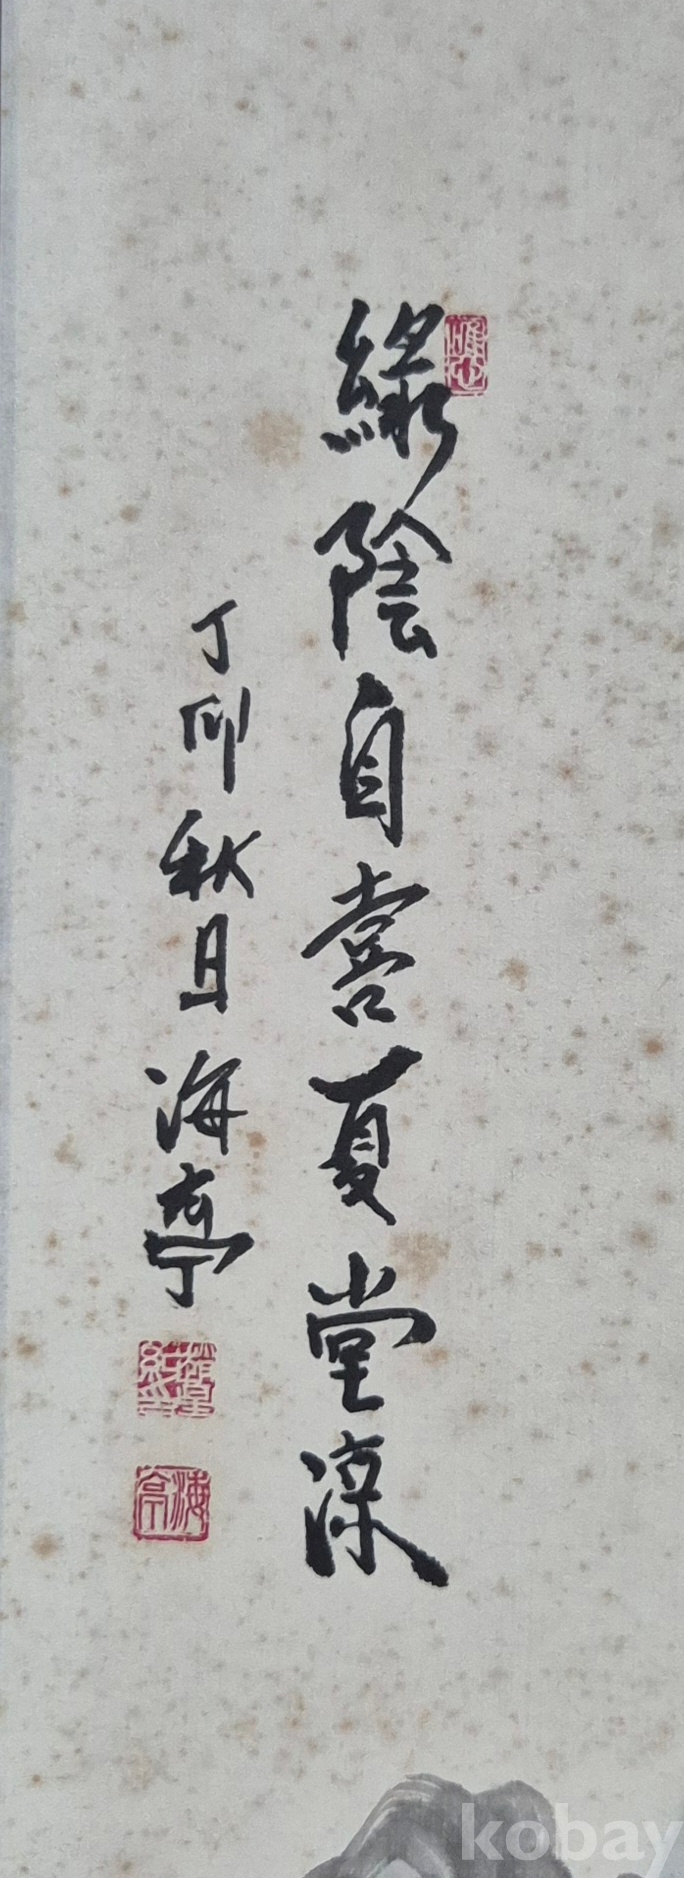 綠陰自喜夏堂涼
丁卯秋日 海亭
海亭
kobay